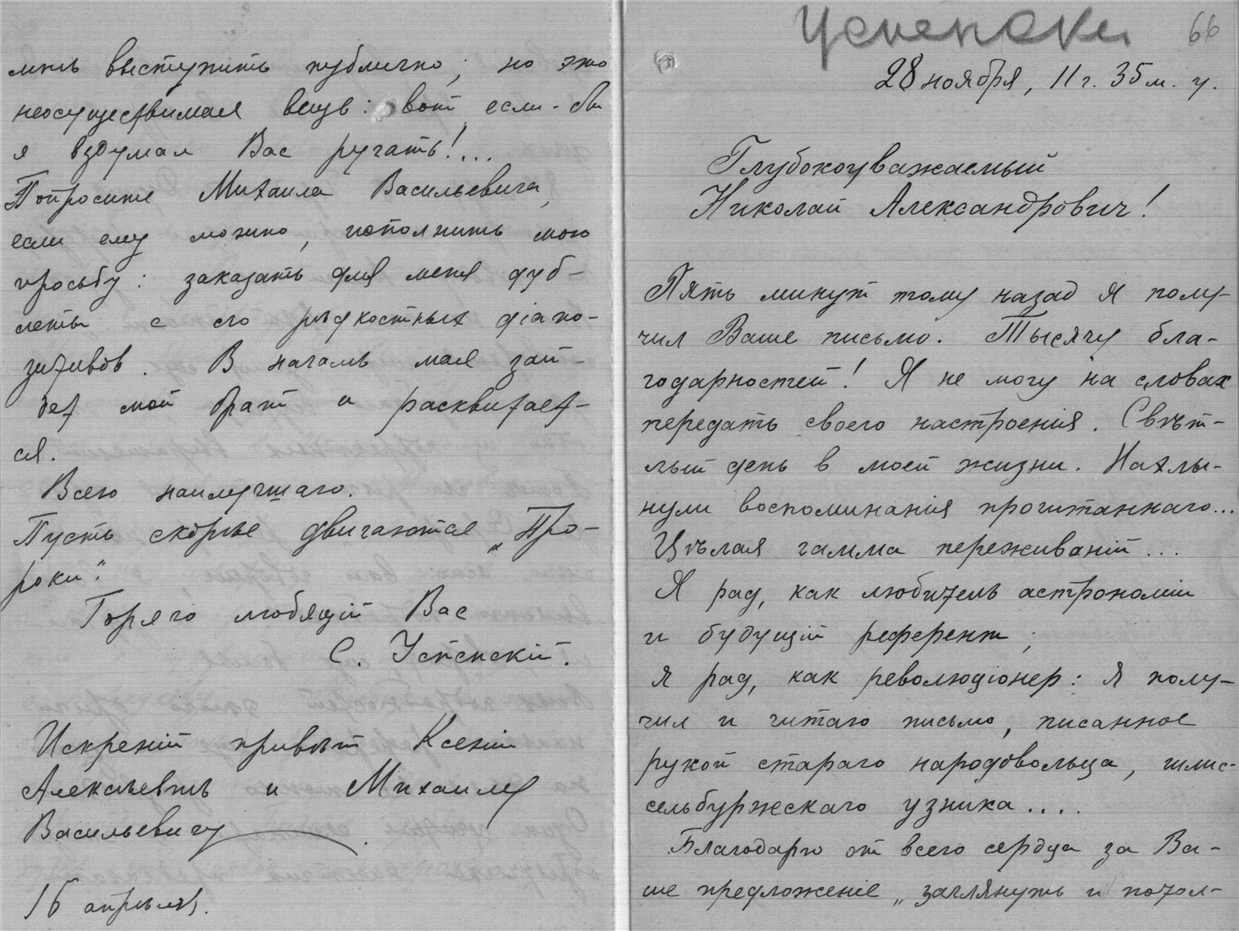 мнѣ выступить публично; но это
неосуществимая вещь: вот если-бы
я вздумал Вас ругать!...
Попросите Михаила Васильевича,
если ему можно, исполнить мою
просьбу: заказать для меня дуб-
леты с его рѣдкостных діапо-
зитивов. В началѣ мая зай-
дет мой брат и расквитает-
ся.
Всего наилучшаго.
Пусть скорѣе двигаются „Про-
роки".
Горячо любящій Вас
С. Успенскій.
Искреній привѣт Ксеніи
Алексѣевнѣ и Михаилу
Васильевичу.
16 апрѣля.
Успенски 66
28 ноября, 11 г. 35 м. у.
Глубокоуважаемый
Николай Александрович!
Пять минут тому назад я полу-
чил Ваше письмо. Тысячу бла-
годарностей! Я не могу на словах
передать своего настроенія. Свѣт-
лый день в моей жизни. Нахлы-
нули воспоминанія прочитаннаго...
Цѣлая гамма переживаній...
Я рад, как любитель астрономіи
и будущій референт;
я рад, как революціонер: я полу-
чил и читаю письмо, писанное
рукой стараго народовольца, шлис-
сельбуржскаго узника....
Благодарю от всего сердца за Ва-
ше предложеніе „заглянуть и потол-